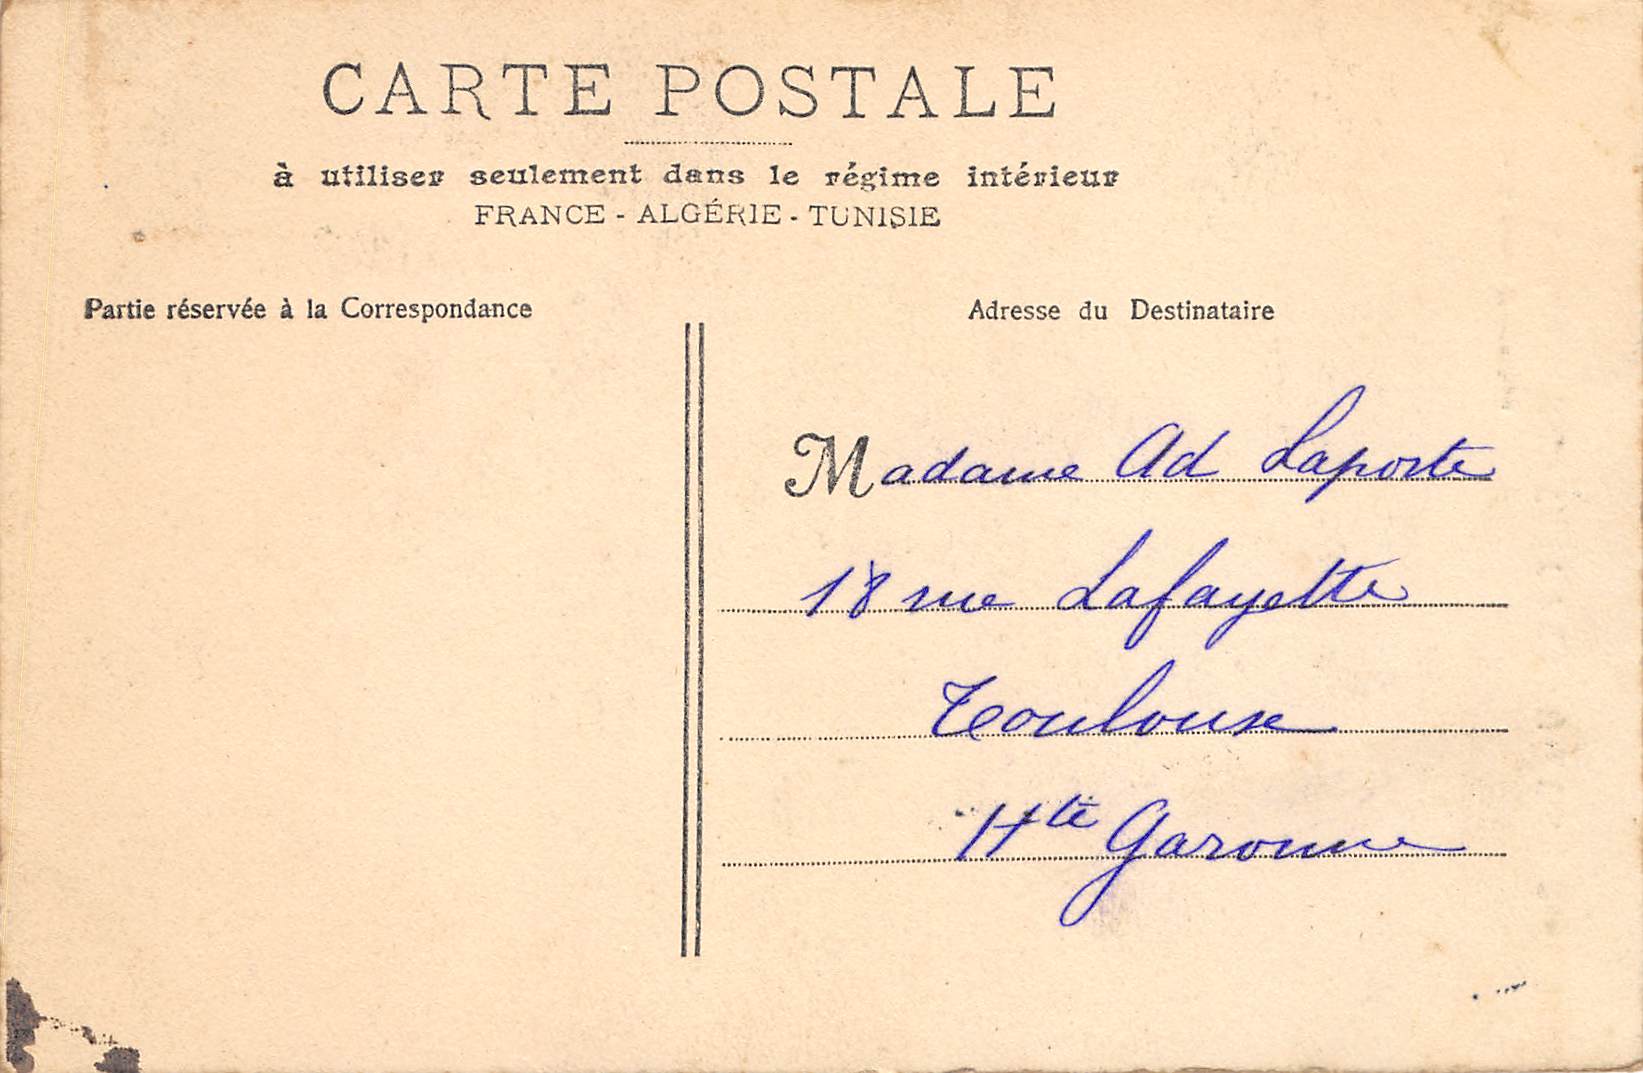 CARTE POSTALE
à utiliser seulement dans le régime intérieur
FRANCE - ALGÉRIE - TUNISIE
Partie réservée à la Correspondance
Adresse du Destinataire
Madame Ad Laporte
18 rue Lafayette
Toulouse
Hte Garonne